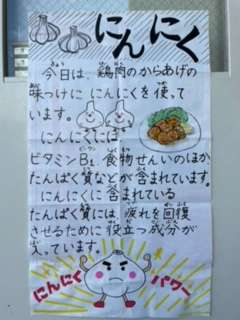 にんにく
今日は 鶏肉のからあげの
味つけに にんにくを使って
います。
にんにくには
ビタミンB1 食物せんいのほか
たんぱく質などが含まれています。
にんにくに含まれている
たんぱく質には、疲れを回復
させるために役立つ成分が
入っています。
にんにく パワー